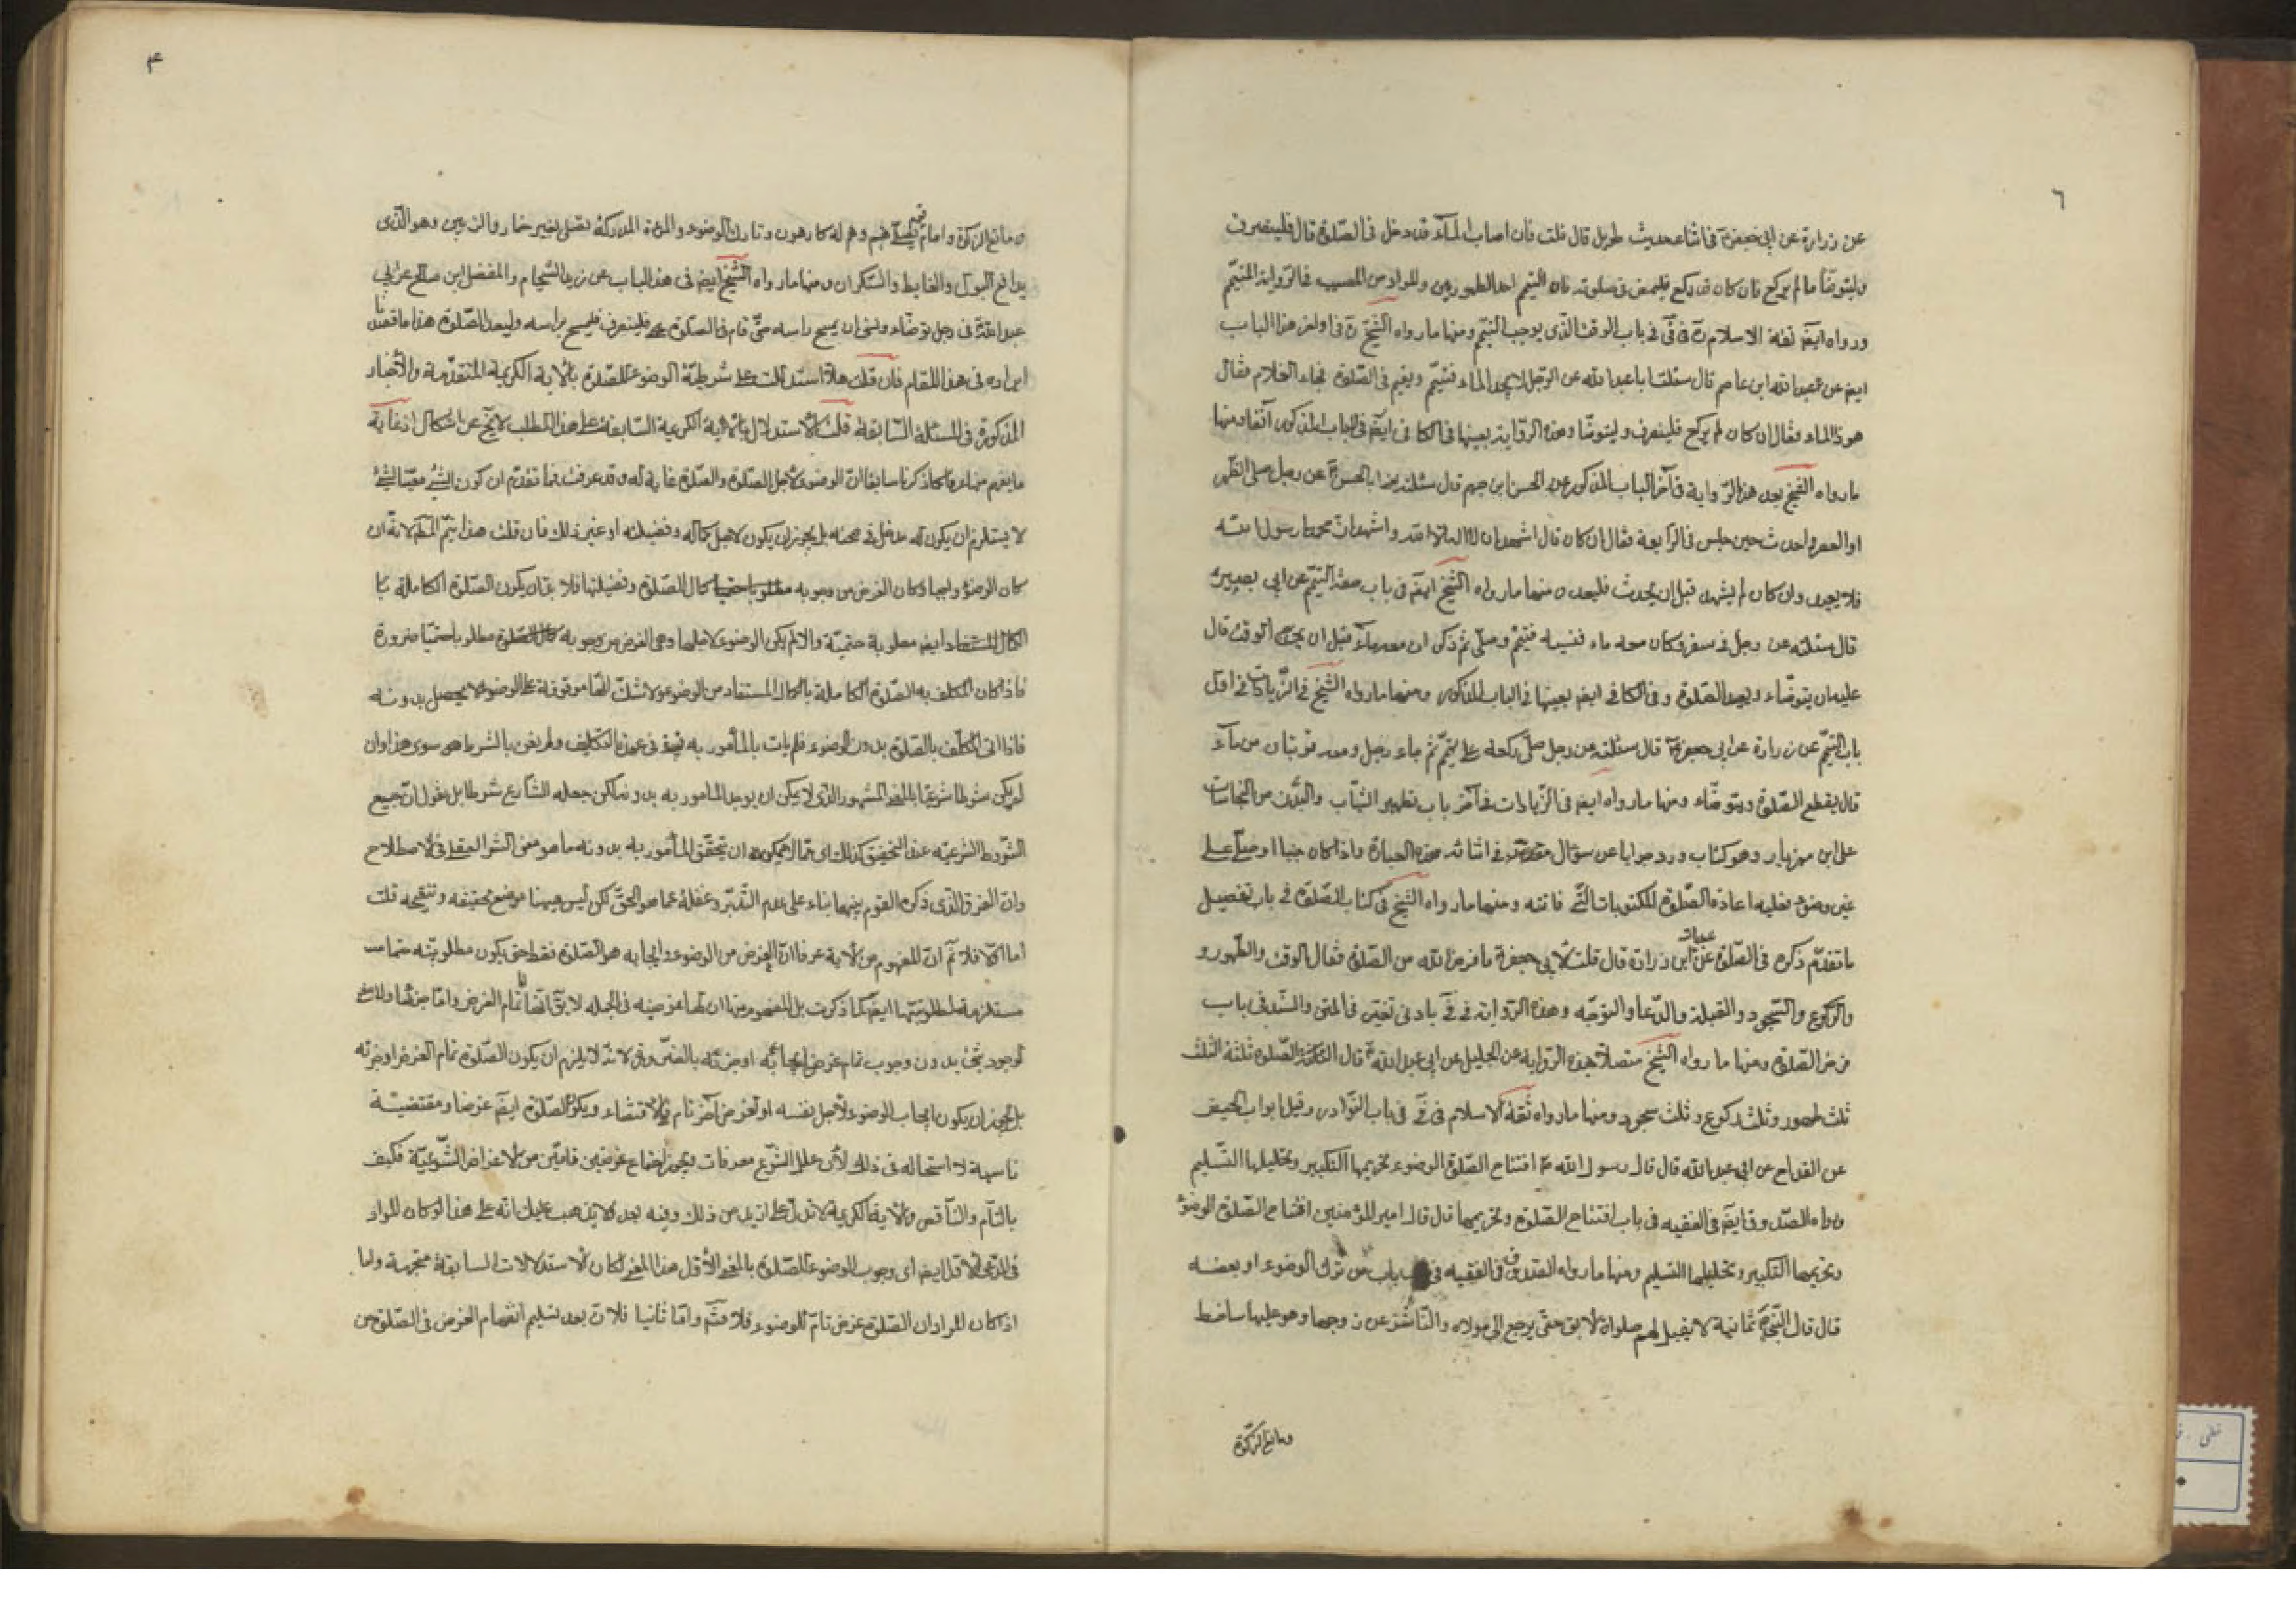 ٦
عن زرارة عن ابي جعفر ع فى اثناء حديث طويل قال قلت فان اصاب الماء وقد دخل فى الصّلوة قال فلينصرف
وليتوضّأ ما لم يركع فان كان قد ركع فليمض فى صلوته فان التيمم احد الطهورين والمراد من المصيب فى الرواية المتيمّم
ورواه ايضا ثقة الاسلام ره فى فى باب الوقت الّذى يوجب التيمّم ومنها ما رواه الشيخ ره فى اواخر هذا الباب
ايضا عن عبد الله ابن عاصم قال سئلت ابا عبد الله عن الرّجل لا يجد الماء فتيمّم ويقيم فى الصّلوة فجاء الغلام فقال
هوذا الماء فقال ان كان لم يركع فلينصرف وليتوضّأ وهذه الرّواية بعينها فى الكافى ايضا فى الباب المذكور آنفا ومنها
ما رواه الشيخ بعد هذه الرّواية فى آخر الباب المذكور عن الحسن ابن جهم قال سئلته يعنى ابا الحسن ع عن رجل صلى الظهر
او العصر واحدث حين جلس فى الرابعة فقال ان كان قال اشهد ان لا اله الا الله واشهد انّ محمدا رسول الله
فلا يعيد وان كان لم يتشهد قبل ان يحدث فليعد ومنها ما رواه الشيخ ايضا فى باب صفة التيمّم عن ابى بصير
قال سئلته عن رجل فى سفر وكان معه ماء فنسيه فتيمّم وصلّى ثم ذكر ان معه ماء قبل ان يخرج الوقت قال
عليه ان يتوضّاء ويعيد الصّلوة وفى الكافى ايضا بعينها فى الباب المذكور ومنها ما رواه الشيخ فى الزّيادات فى اوّل
باب التيمّم عن زرارة عن ابى جعفر ع قال سئلته عن رجل صلّى ركعة على تيمّم ثم جاء رجل ومعه قربتان من ماء
قال يقطع الصّلوة ويتوضّاء ومنها ما رواه ايضا فى الزّيادات فى آخر باب تطهير الثياب والبدن من النجاسات
على ابن مهزيار وهو كتاب ورد جوابا عن سؤال فى اثنائه هذه العبارة واذا كان جنبا او صلّى على
غير وضوء فعليه اعادة الصّلوة المكتوبات التّى فاتته ومنها ما رواه الشيخ فى كتاب الصّلوة فى باب تفصيل
ما تقدّم ذكره فى الصّلوة عن زرارة قال قلت لأبى جعفر ع ما فرض الله من الصّلوة فقال الوقت والطّهور و
والرّكوع والسّجود والقبلة والدّعا والتوجّه وهذه الرّواية فى فى بادنى تغيّر فى المتن والسّند فى باب
فرض الصّلوة ومنها ما رواه الشيخ متصلاً بهذه الرّواية عن الحلبى عن ابى عبد الله ع قال الصّلوة ثلثة اثلث
ثلث طهور وثلث ركوع وثلث سجود ومنها ما رواه ثقة الاسلام فى فى فى باب النّوادر وقبل ابواب الحيض
عن القداح عن ابى عبد الله قال قال رسول الله ص افتتاح الصّلوة الوضوء وتحريمها التكبير وتحليلها التّسليم
ورواه الصّدوق ايضا فى الفقيه فى باب افتتاح الصّلوة وتحريمها قال قال امير المؤمنين افتتاح الصّلوة الوضوء
وتحريمها التكبير وتحليلها التسليم ومنها ما رواه الصّدوق فى الفقيه فى باب من ترك الوضوء او بعضه
قال قال النّبى ص ثمانية لا يقبل لهم صلوة الابق حتى يرجع الى مولاه والنّاشز عن زوجها وهو عليها ساخط
ومانع الزكوة
٤
ومانع الزكوة وامام قوم يصلّى بهم وهم له كارهون وتارك الوضوء والمرءة المدركة تصلى بغير خمار والزبين وهو الّذى
يدافع البول والغايط والسّكران ومنها ما رواه الشيخ ايضا فى هذا الباب عن زيد الشّحام والمفضل ابن صالح عن ابى
عبد الله ع فى رجل توضّاء ونسى ان يمسح راسه حتّى قام فى الصّلوة قال فلينصرف فليمسح براسه وليعد الصّلوة هذا ما قصدنا
ايراده فى هذا المقام فان قلت هلّا استدللت على شرطيّة الوضوء للصّلوة بالآية الكريمة المتقدّمة والأخبار
المذكورة فى المسئلة السّابقة قلت الأستدلال بالآية الكريمة السّابقة على هذا المطلب لا يخ عن اشكال اذ غاية
ما يفهم منها عرفا كما ذكرنا سابقا انّ الوضوء لأجل الصّلوة والصّلوة غاية له وقد عرفت فيما تقدّم ان كون الشّىء مغيّا لشّىء
لا يستلزم ان يكون له مدخل فى صحته بل يجوز ان يكون لاجل كماله وفضيلته او غير ذلك فان قلت هذا يتمّ المط لانّه ان
كان الوضوء واجبا وكان الغرض من وجوبه كمال الصّلوة وفضيلتها فلا بدّ ان يكون الصّلوة الكاملة بذا
الكمال المستفاد ايضا مطلوبة حتميّة والا لم يكن الوضوء لاجلها وهى الغرض من وجوبه مطلوبا حتميّا ضرورة
فاذا كان المكلف به الصّلوة الكاملة بالكمال المستفاد من الوضوء ولا شكّ انّها موقوفة على الوضوء لا يحصل بدونه
فاذا اتى المكلّف بالصّلوة بدون الوضوء فلم يات بالمأمور به فيبقى فى عهدة التكليف ولم يعن بالشرط هى سوى هذا وان
لم يكن شرطا شرعيّا بالمعنى المشهور الّذى لا يمكن ان يوجد المامور به بدونه لكن جعله الشّارع شرطا بل نقول انّ جميع
الشّروط الشرعيّه عند التحقيق كذلك اى ممّا لا يمكن ان يتحقّق المأمور به بدونه ما هو معنى الشرط العقلى فى الاصطلاح
وانّ الفرق الّذى ذكره القوم بينهما بناء على عدم التّدبّر وغفلة عمّا هو الحقّ لكن ليس هيهنا موضع تحقيقه وتنقيحه قلت
امّا اوّلا فلا نمّ انّ المفهوم من الآية عرفا انّ الغرض من الوضوء وايجابه هو الصّلوة فقط حتى يكون مطلوبيّته حتما
مستلزمة لمطلوبيّتها ايضا كما ذكرت بل المفهوم منها ان لها غرضيّة فى الجمله لا بدّ انّها تمام الغرض وامّا
لوجود شىء بدون وجوب تمام غرض ايجابه او جزئه بالضّرورة لانّه لا يلزم ان يكون الصّلوة تمام الغرض او جزئه
بل يجوز ان يكون ايجاب الوضوء لأجل نفسه او لغرض آخر تام الاقتضاء ويكون الصّلوة ايضا غرضا ومقتضيّة
ناسية لا استحاله فى ذلك لأن علل الشّرع معرفات يجوز اجتماع غرضين تامّين من الاغراض الشّرعيّة فكيف
بالتّام والنّاقص والآية الكريمة لا تدلّ على ازيد من ذلك وفيه بعد لا يذهب عليك انّه على هذا لو كان المراد
فى الدّعوى الأوّل ايضا اى وجوب الوضوء للصّلوة بالمعنى الأوّل هذا المعنى لكان الاستدلالات السابقة متّجهة وامّا
اذا كان المراد ان الصّلوة غرض تامّ للوضوء فلا يتمّ وامّا ثانيا فلانّ بعد تسليم انفهام الغرض فى الصّلوة من